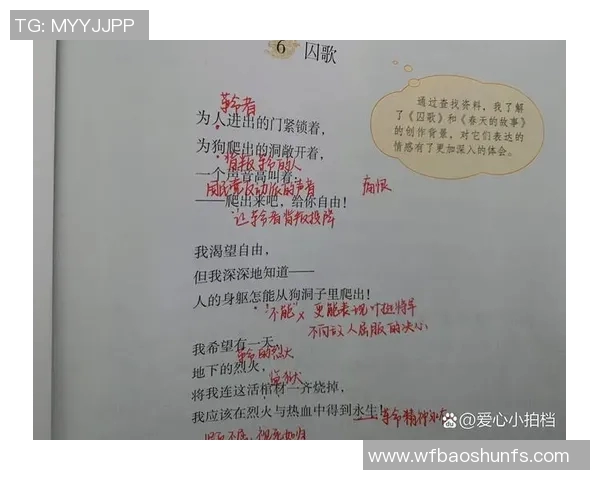 TG: MYYJJPP
6 囚歌
通过查找资料，我了解
了《囚歌》和《春天的故事》
的创作背景，对它们表达的
情感有了更加深入的体会。
革命者
为人进出的门紧锁着，
为狗爬出的洞敞开着，
背叛革命的人
一个声音高叫着：
国民党反动派的声音
痛恨
——爬出来吧，给你自由！
让革命者背叛投降
我渴望自由，
但我深深地知道——
人的身躯怎能从狗洞子里爬出！
"不能"× 更能表现叶挺将军
不向敌人屈服的决心
我希望有一天，
革命的烈火
地下的烈火，
监狱
将我连这活棺材一齐烧掉，
我应该在烈火与热血中得到永生！
革命精神永
视死如归
@爱心小拍档
www.wfbaoshunfs.com